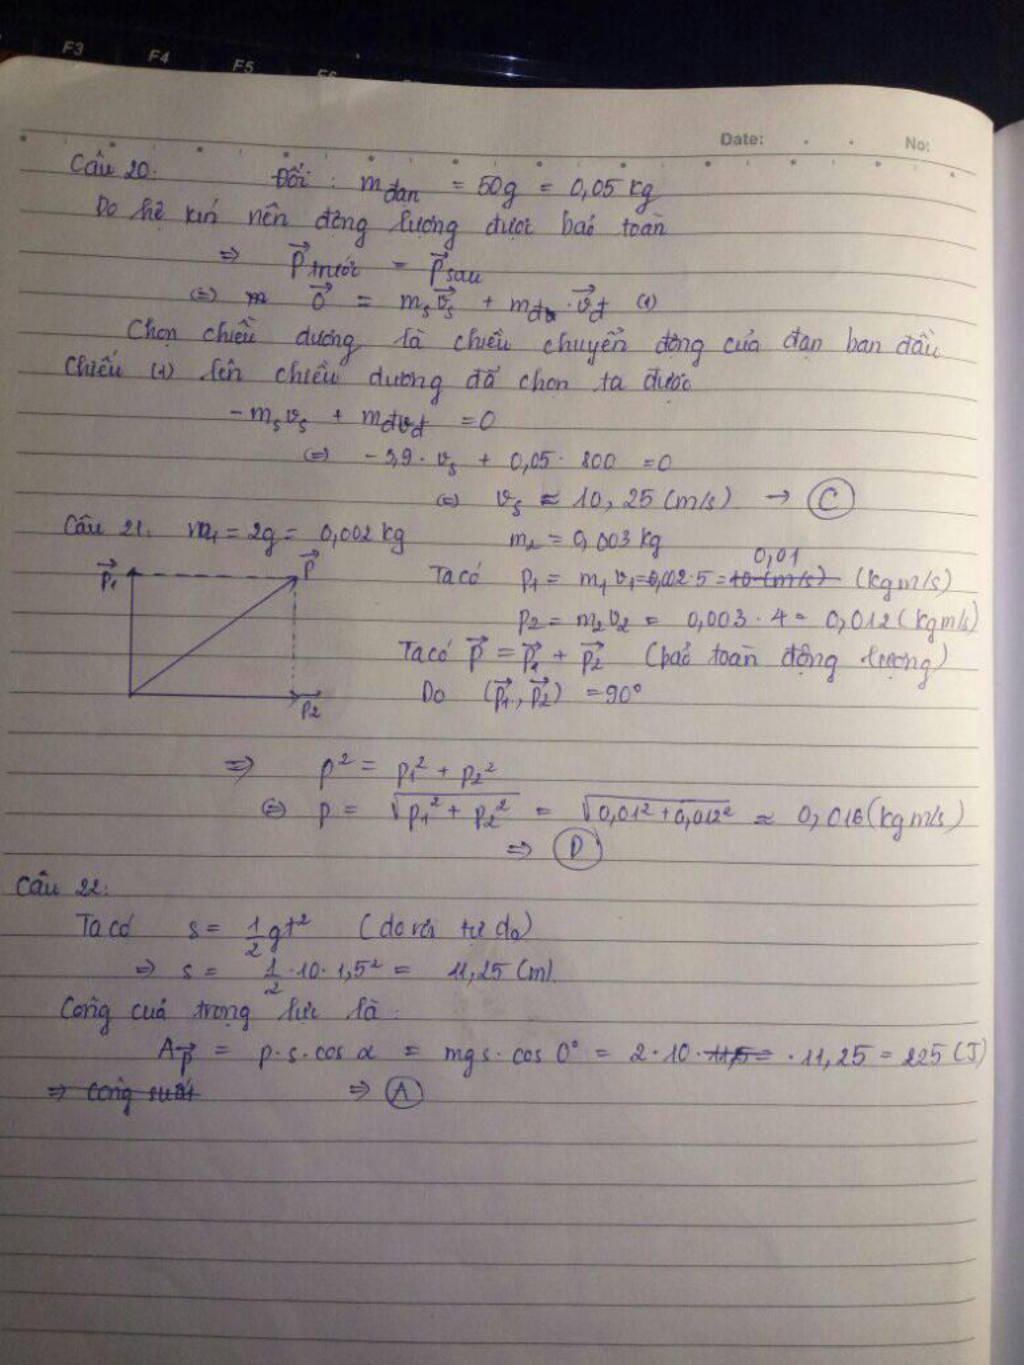 F3 F4 F5 F6
Date: No:
Câu 20. Đổi : m đạn = 50g = 0,05 kg
Do hệ kín nên động lượng được bảo toàn
⇒ P⃗ trước = P⃗ sau
⇔ 0⃗ = mₛv⃗ₛ + mđ . v⃗đ (1)
Chọn chiều dương là chiều chuyển động của đạn ban đầu
Chiếu (1) lên chiều dương đã chọn ta được
-mₛvₛ + mđvđ = 0
⇔ -3,9 . vₛ + 0,05 . 800 = 0
⇔ vₛ ≈ 10,25 (m/s) → C
Câu 21. m₁ = 2g = 0,002 kg m₂ = 0,003 kg
p⃗₁ p⃗ p⃗₂
Ta có p₁ = m₁v₁ = 0,002 . 5 = 0,01 (kgm/s)
p₂ = m₂v₂ = 0,003 . 4 = 0,012 (kgm/s)
Ta có p⃗ = p⃗₁ + p⃗₂ (bảo toàn động lượng)
Do (p⃗₁, p⃗₂) = 90°
⇒ p² = p₁² + p₂²
⇔ p = √(p₁² + p₂²) = √(0,01² + 0,012²) ≈ 0,016 (kgm/s)
⇒ D
Câu 22:
Ta có s = 1/2 gt² (do rơi tự do)
⇒ s = 1/2 . 10 . 1,5² = 11,25 (m)
Công của trọng lực là:
A p⃗ = p . s . cos α = mgs . cos 0° = 2 . 10 . 11,25 = 225 (J)
⇒ công suất ⇒ A